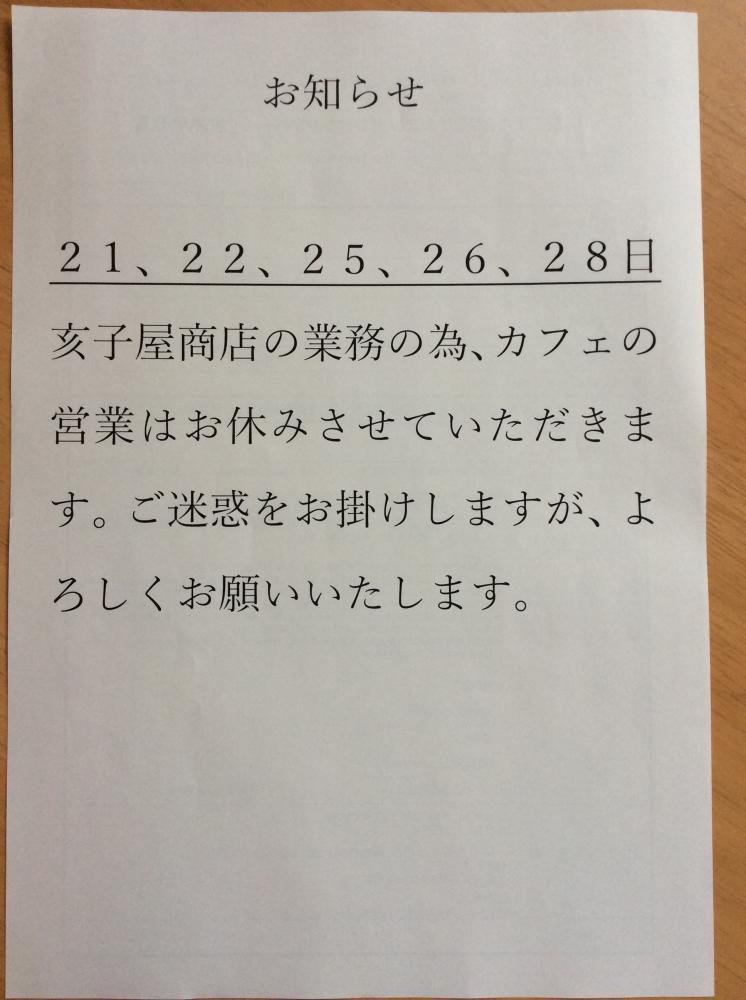 お知らせ
２１、２２、２５、２６、２８日
亥子屋商店の業務の為、カフェの
営業はお休みさせていただきま
す。ご迷惑をお掛けしますが、よ
ろしくお願いいたします。